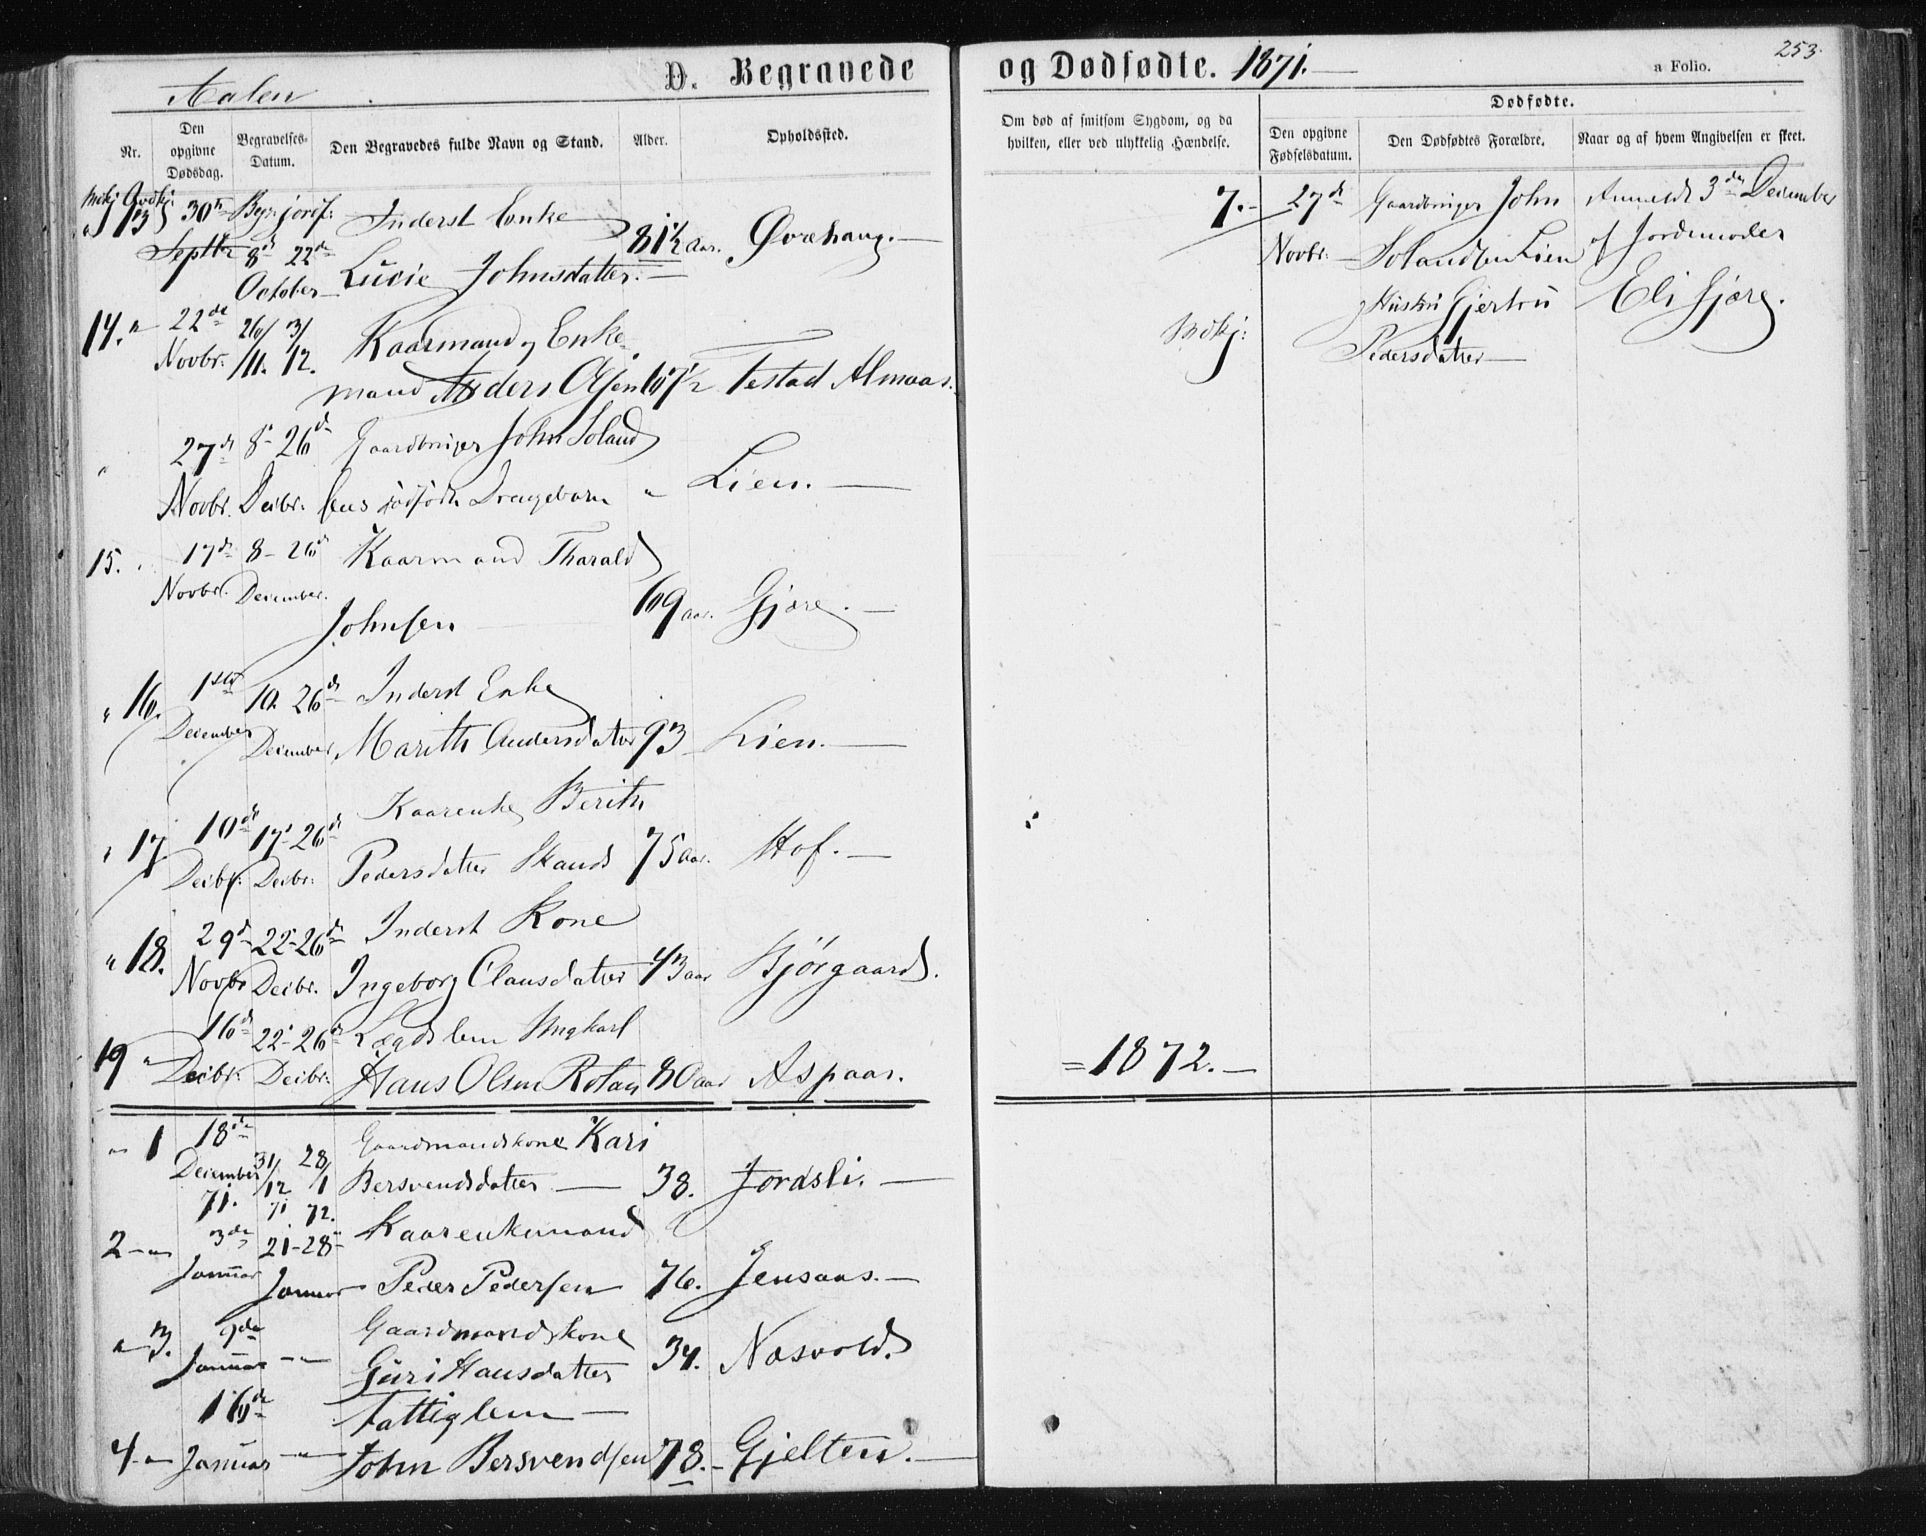 Aalen
D. Begravede
og Dødfødte. 1871.
a Folio.
253.
Nr.
Den opgivne Dødsdag.
Begravelses-Datum.
Den Begravedes fulde Navn og Stand.
Alder.
Opholdssted.
Om død af smitsom Sygdom, og da
hvilken, eller ved ulykkelig Hændelse.
Dødfødte.
Den opgivne Fødselsdatum.
Den Dødfødtes Forældre.
Naar og af hvem Angivelsen er skeet.
13 30te Inderst Enke
Septbr 8d 22de 81½ aar. Øvrehaug.
October Lucie Johnsdatter.
14. " 22de 26/ 3/ Kaarmand og Enke-
Novbr. /11. /12. mand Anders Olsen 67½ Testad Almaas.
" 27d 8- 26d Gaardbruger John Soland
Novbr. Decbr. sens dødfødte Drengebarn " Lien.
15. 17d 8- 26d Kaarmand Tharald
Novbr. December. Johnsen 69 aar. Gjøre.
" 16. 1ste 10. 26d Inderst Enke
December December Marith Andersdatter 93 Lien.
" 17 10d 17- 26d Kaarenke Berith
Decbr: Decbr: Pedersdatter Skands 75 aar. Hof.
" 18. 29d 22- 26d Inderst Kone
Novbr Decbr. Ingeborg Clausdatter 43 aar Bjørgaard.
19 " 16d 22- 26d Lægdslem Ungkarl
Decbr. Decbr: Hans Olsen Rotan 80 aar Aspaas.
" 1 18de Gaardmandskone Kari
December 31/ 28/ Bersvendsdatter 38. Jordsli.
71. /12 /1
71 72.
2 - " 3de 21- 28- Kaarenkemand
Januar Januar Peder Pedersen 76. Jensaas.
" 3. 9de Gaardmandskone
Januar - " Guri Hansdatter 34. Næsvold.
16de Fattiglem
4 - " Januar - " John Bersvendsen 78. Gjelten.
7. 27d Gaardbruger John Anmeldt 3de December
Novbr. Solandsen Lien af Jordemoder
Hustru Gjertru Eli Gjøre.
Pedersdatter
= 1872.